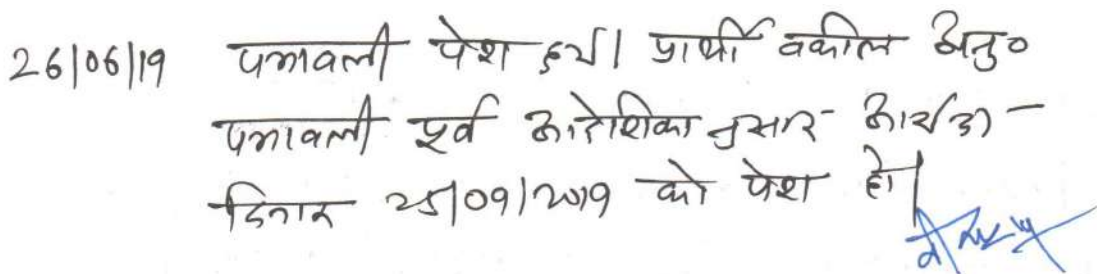 26/06/19 पत्रावली पेश हुयी। प्रार्थी वकील अनु०
पत्रावली पूर्व आदेशिकानुसार
दिनांक 25/09/2019 को पेश हो।